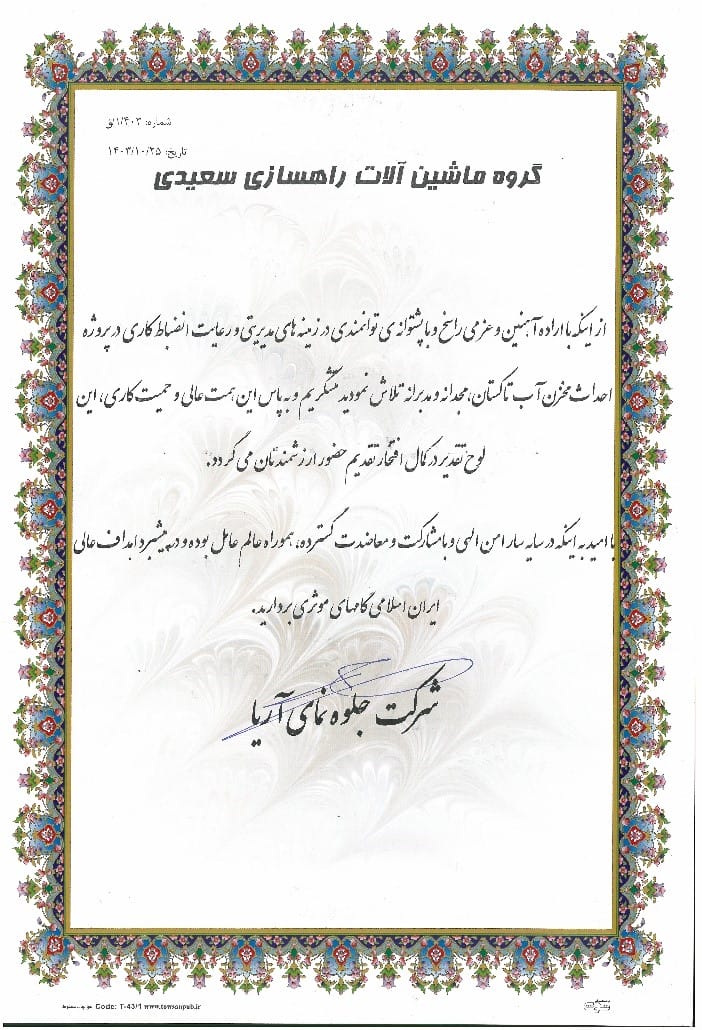 شماره: ۱/۴۰۳/ق
تاریخ: ۱۴۰۳/۱۰/۲۵
گروه ماشین آلات راهسازی سعیدی
از اینکه با اراده آهنین و عزمی راسخ و با پشتوانه ی توانمندی در زمینه های مدیریتی و رعایت انضباط کاری در پروژه
احداث مخزن آب تاکستان، مجدانه و مدبرانه تلاش نمودید متشکریم و به پاس این همت عالی و حمیت کاری، این
لوح تقدیر در کمال افتخار تقدیم حضور ارزشمندتان می گردد.
با امید به اینکه در سایه سار امن الهی و با مشارکت و معاضدت گسترده، همواره عالم عامل بوده و در پیشبرد اهداف عالی
ایران اسلامی گامهای موثری بردارید.
شرکت جلوه نمای آریا
Code: T-43/1 www.towsanpub.ir